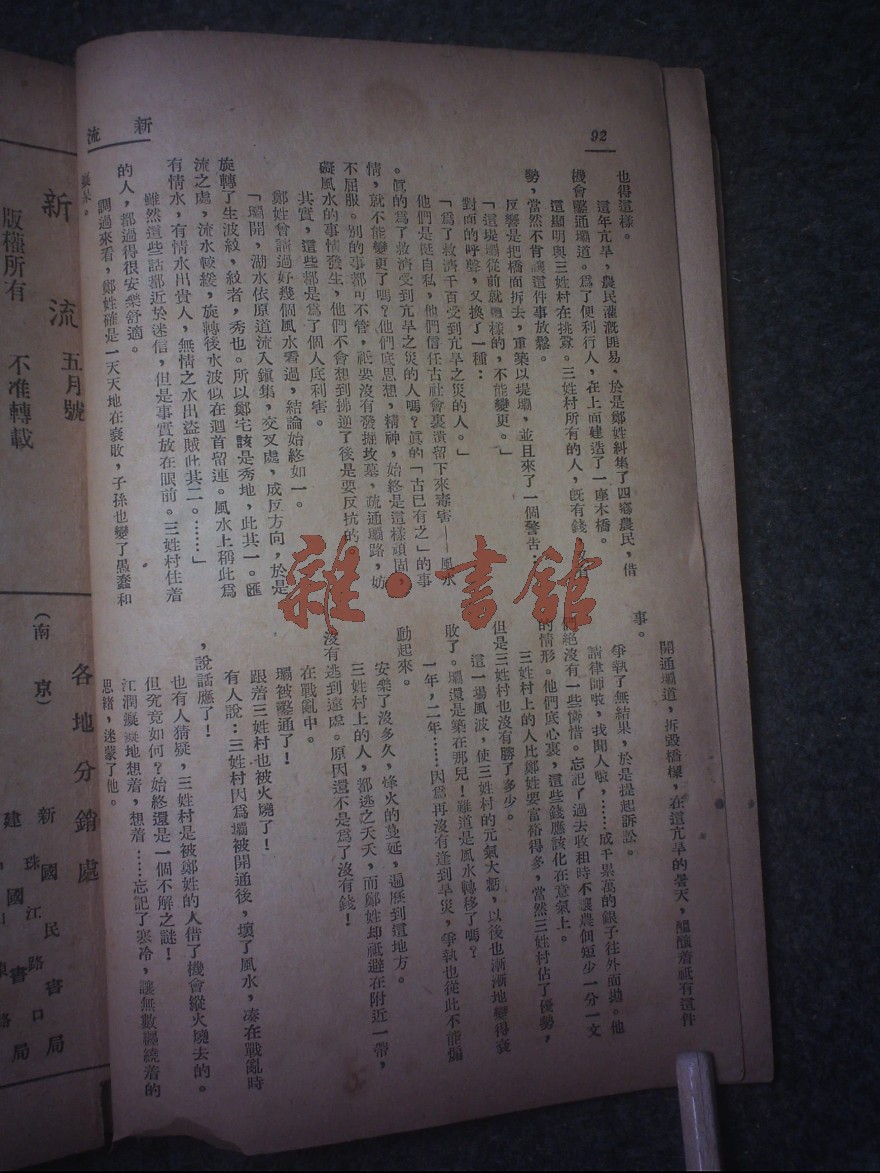 92
新流
也得這樣。
這年亢旱，農民灌漑匪易，於是鄭姓糾集了四鄉農民，借
機會鑿通壩道。爲了便利行人，在上面建造了一座木橋。
這顯明與三姓村在挑釁。三姓村所有的人，旣有錢
勢，當然不肯讓這件事放鬆。
反響是把橋面拆去，重築以堤壩，並且來了一個警告：
「這堤壩從前就這樣的，不能變更。」
對面的呼聲，又換了一種：
「爲了救濟千百受到亢旱之災的人。」
他們是挺自私，他們信任古社會裏遺留下來毒害——風水
。眞的爲了救濟受到亢旱之災的人嗎？眞的「古已有之」的事
情，就不能變更了嗎？他們底思想，精神，始終是這樣頑固，
不屈服。別的事都可不管，祇要沒有發掘坟墓，疏通壩路，妨
礙風水的事情發生，他們不會想到拂逆了後是要反抗的
其實，這些都是爲了個人底利害。
鄭姓曾請過好幾個風水看過，結論始終如一。
「壩開，湖水依原道流入鎭集，交叉處，成反方向，於是
旋轉了生波紋，紋者，秀也。所以鄭宅該是秀地，此其一。匯
流之處，流水較緩，旋轉後水波似在廻首留連。風水上稱此爲
有情水，有情水出貴人，無情之水出盜賊此其二。……」
雖然這些話都近於迷信，但是事實放在眼前。三姓村住着
的人，都過得很安樂舒適。
調過來看，鄭姓確是一天天地在衰敗，子孫也變了愚蠢和
開通壩道，拆毀橋樑，在這亢旱的暑天，醞釀着祇有這件
事。
爭執了無結果，於是提起訴訟。
請律師啦，找聞人啦，……成千累萬的銀子往外面拋。他
們絕沒有一些惋惜。忘記了過去收租時不讓農佃短少一分一文
的情形。他們底心裏，這些錢應該化在意氣上。
三姓村上的人比鄭姓要富裕得多，當然三姓村佔了優勢，
但是三姓村也沒有勝了多少。
這一場風波，使三姓村的元氣大虧，以後也漸漸地變得衰
敗了。壩還是築在那兒！難道是風水轉移了嗎？
一年，二年……因爲再沒有逢到旱災，爭執也從此不能煽
動起來。
安樂了沒多久，烽火的蔓延，遍歷到這地方。
三姓村上的人，都逃之夭夭，而鄭姓却祇避在附近一帶，
沒有逃到遠處。原因還不是爲了沒有錢！
在戰亂中。
壩被鑿通了！
跟着三姓村也被火燒了！
有人說：三姓村因爲壩被開通後，壞了風水，凑在戰亂時
，說話應了！
也有人猜疑，三姓村是被鄭姓的人借了機會縱火燒去的。
但究竟如何？始終還是一個不解之謎！
江潤癡癡地想着，想着……忘記了寒冷，讓無數纏繞着的
思緒，迷蒙了他。
新流 五月號
版權所有 不准轉載
各地分銷處
（南京）
新國民書局
珠江路口
雜·書館